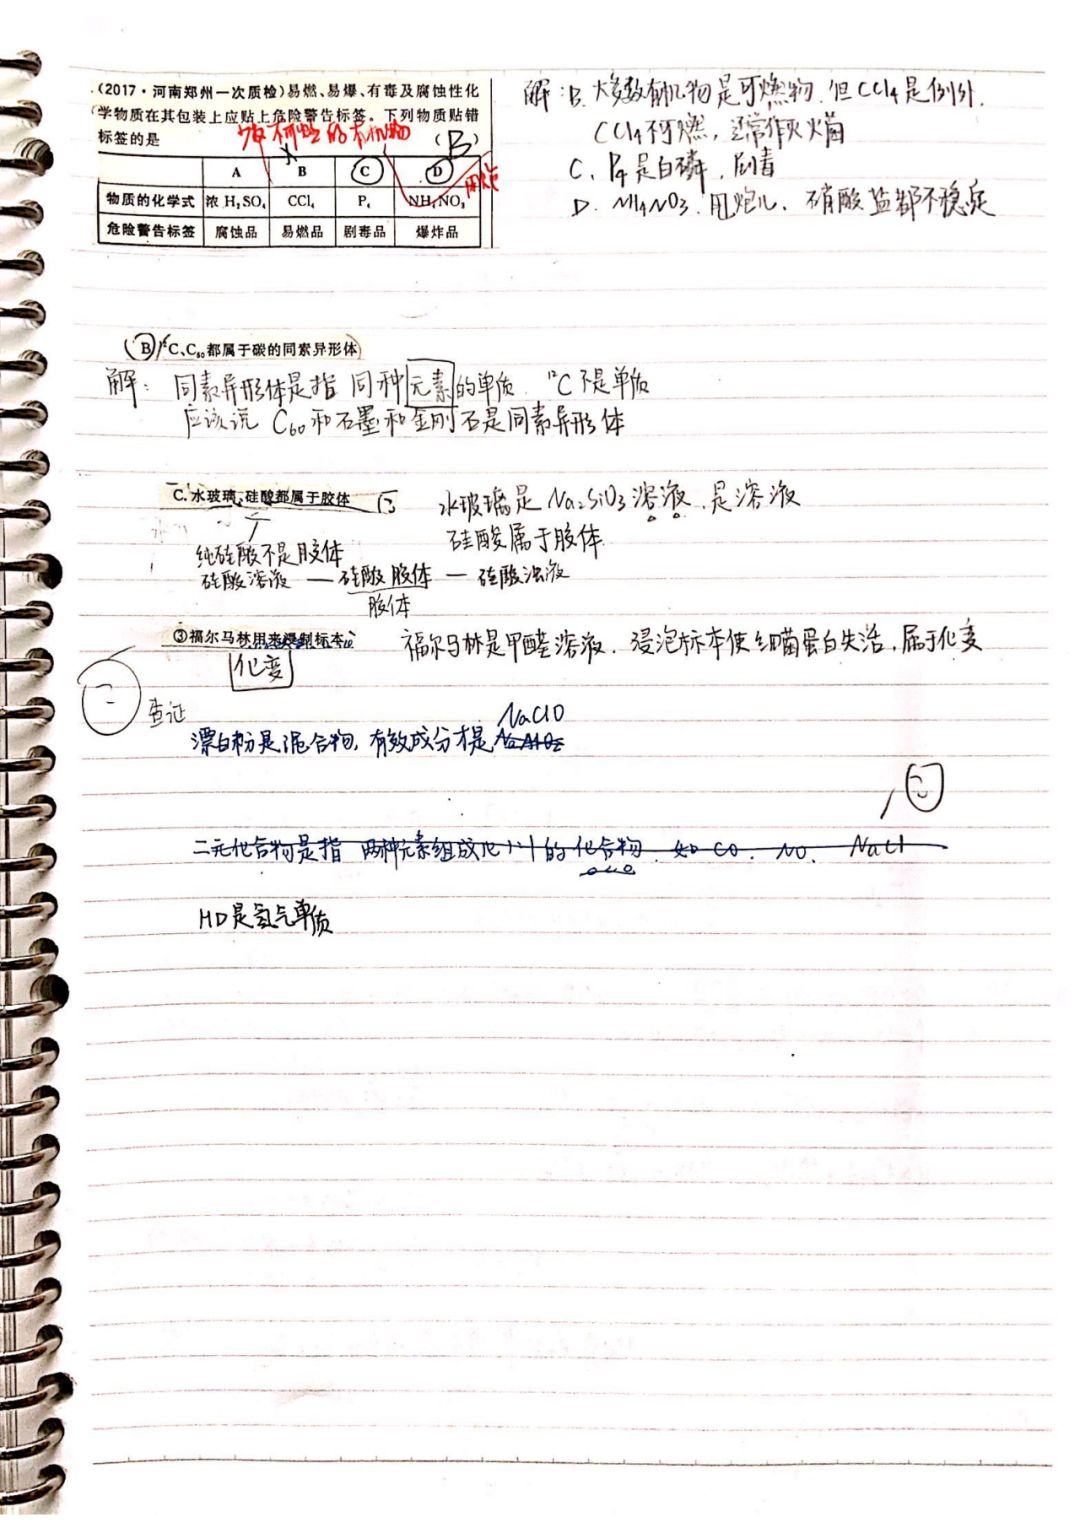 (2017·河南郑州一次质检)易燃、易爆、有毒及腐蚀性化
学物质在其包装上应贴上危险警告标签。下列物质贴错
标签的是
不可燃的有机物
(B)
A B C D
物质的化学式 浓H₂SO₄ CCl₄ P₄ NH₄NO₃
危险警告标签 腐蚀品 易燃品 剧毒品 爆炸品
解:B.大多数有机物是可燃物.但CCl4是例外.
CCl4不可燃,
C.P4是白磷.剧毒
D.NH4NO3.用炮儿.硝酸盐都不稳定
B ¹²C、C₆₀都属于碳的同素异形体
解:同素异形体是指 同种元素的单质.¹²C不是单质
应该说 C60和石墨和金刚石是同素异形体
C.水玻璃、硅酸都属于胶体
水玻璃是Na2SiO3溶液.是溶液
硅酸属于胶体
纯硅酸不是胶体
硅酸溶液 — 硅酸胶体 — 硅酸浊液
胶体
③福尔马林用来浸制标本
福尔马林是甲醛溶液.浸泡标本使细菌蛋白失活,属于化变
化变
查证
NaClO
漂白粉是混合物,有效成分才是
二元化合物是指 两种元素组成的化合物.如CO.NO.NaCl
HD是氢气单质